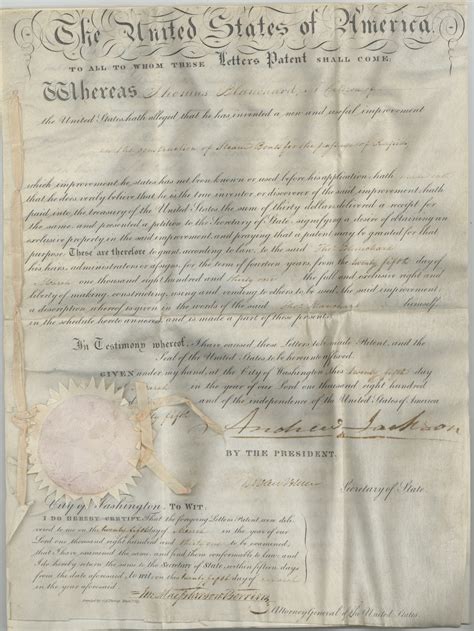 The United States of America.
TO ALL TO WHOM THESE Letters Patent SHALL COME.
Whereas Thomas Blanchard, a citizen of
the United States hath alleged that he has invented a new and useful improvement
in the construction of Steam Boats for the passage of Rapids
which improvement he states has not been known or used before his application hath
that he does verily believe that he is the true inventor or discoverer of the said improvement hath
paid into the treasury of the United States the sum of thirty dollars delivered a receipt for
the same, and presented a petition to the Secretary of State, signifying a desire of obtaining an
exclusive property in the said improvement, and praying that a patent may be granted for that
purpose These are therefore to grant, according to law, to the said Thos Blanchard
his heirs, administrators or assigns, for the term of fourteen years from the twenty fifth day of
one thousand eight hundred and thirty one the full and exclusive right and
liberty of making, constructing, using, and vending to others to be used, the said improvement,
a description whereof is given in the words of the said Thos Blanchard himself
in the schedule hereto annexed, and is made a part of these presents.
In Testimony whereof, I have caused these Letters to be made Patent, and the
Seal of the United States to be hereunto affixed.
GIVEN under my hand, at the City of Washington this twenty fifth day
in the year of our Lord one thousand eight hundred
and of the independence of the United States of America
fifty fifth
Andrew Jackson
BY THE PRESIDENT.
Secretary of State.
City of Washington, TO WIT
I DO HEREBY CERTIFY, That the foregoing Letters Patent were deli
vered to me on the twenty fifth day of March in the year of our
Lord one thousand eight hundred and thirty one to be examined,
that I have examined the same, and find them conformable to law; and
I do hereby return the same to the Secretary of State within fifteen days
from the date aforesaid, To wit on this twenty fifth day of March
in the year aforesaid
Attorney General of the United States.